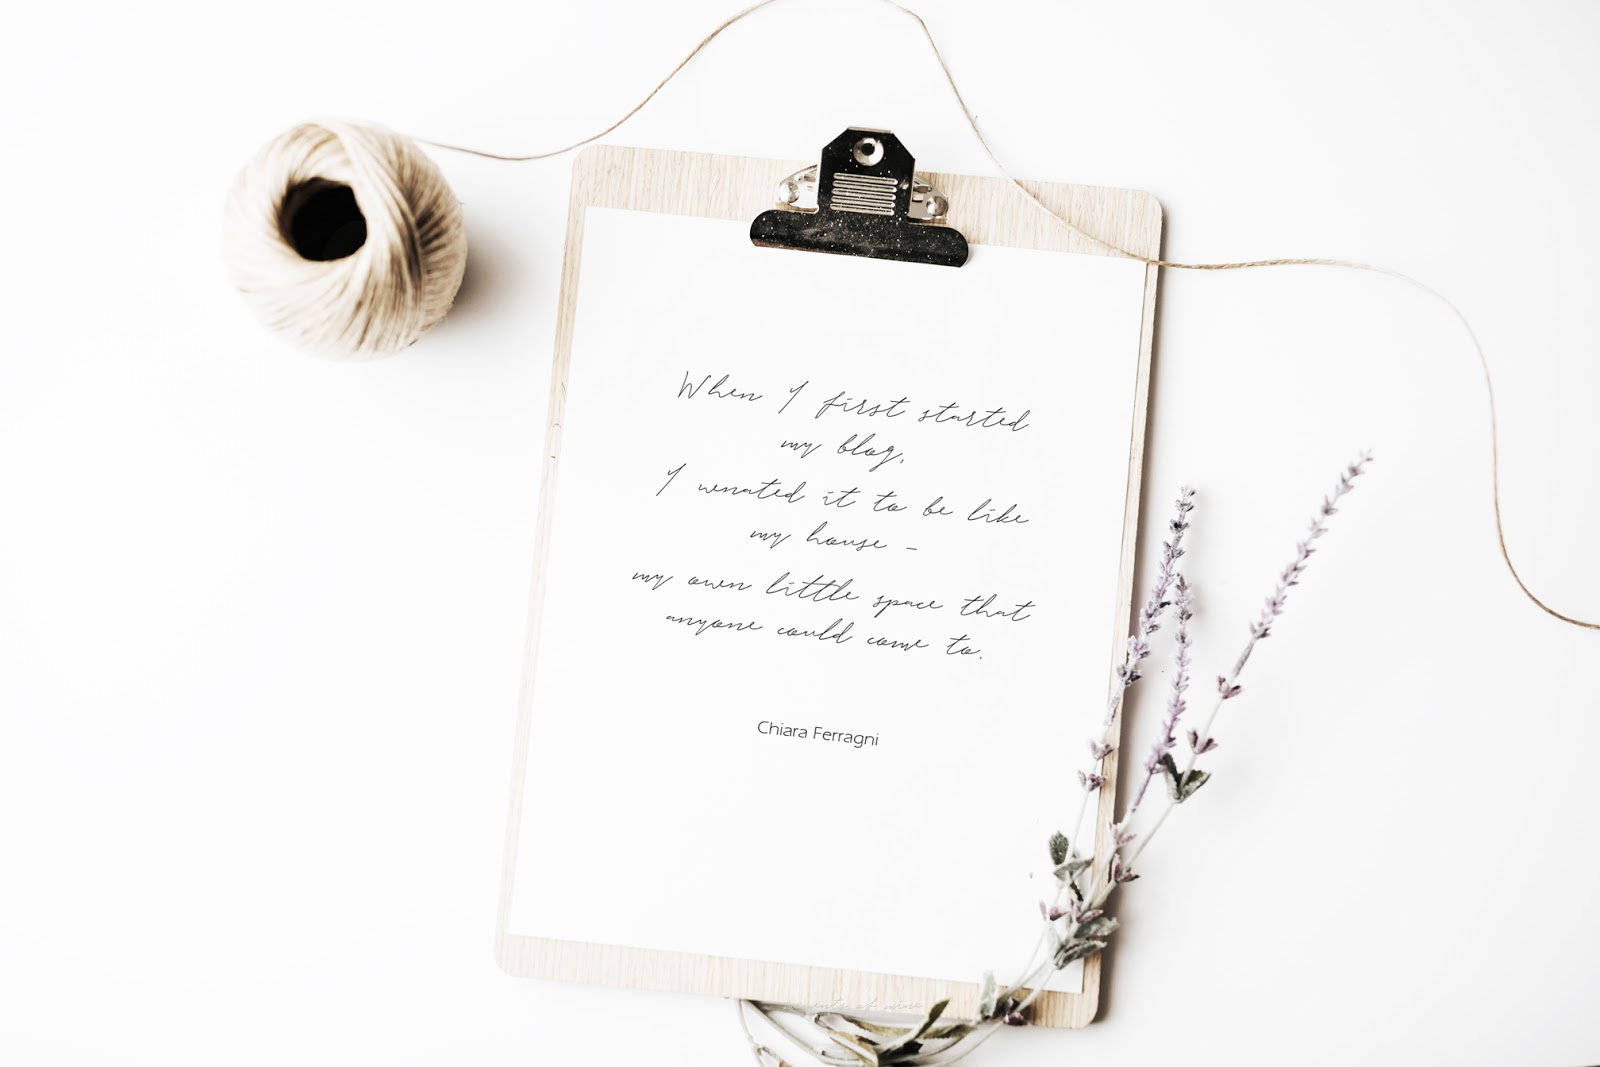 When I first started
my blog,
I wnated it to be like
my house -
my own little space that
anyone could come to.
Chiara Ferragni
of mine